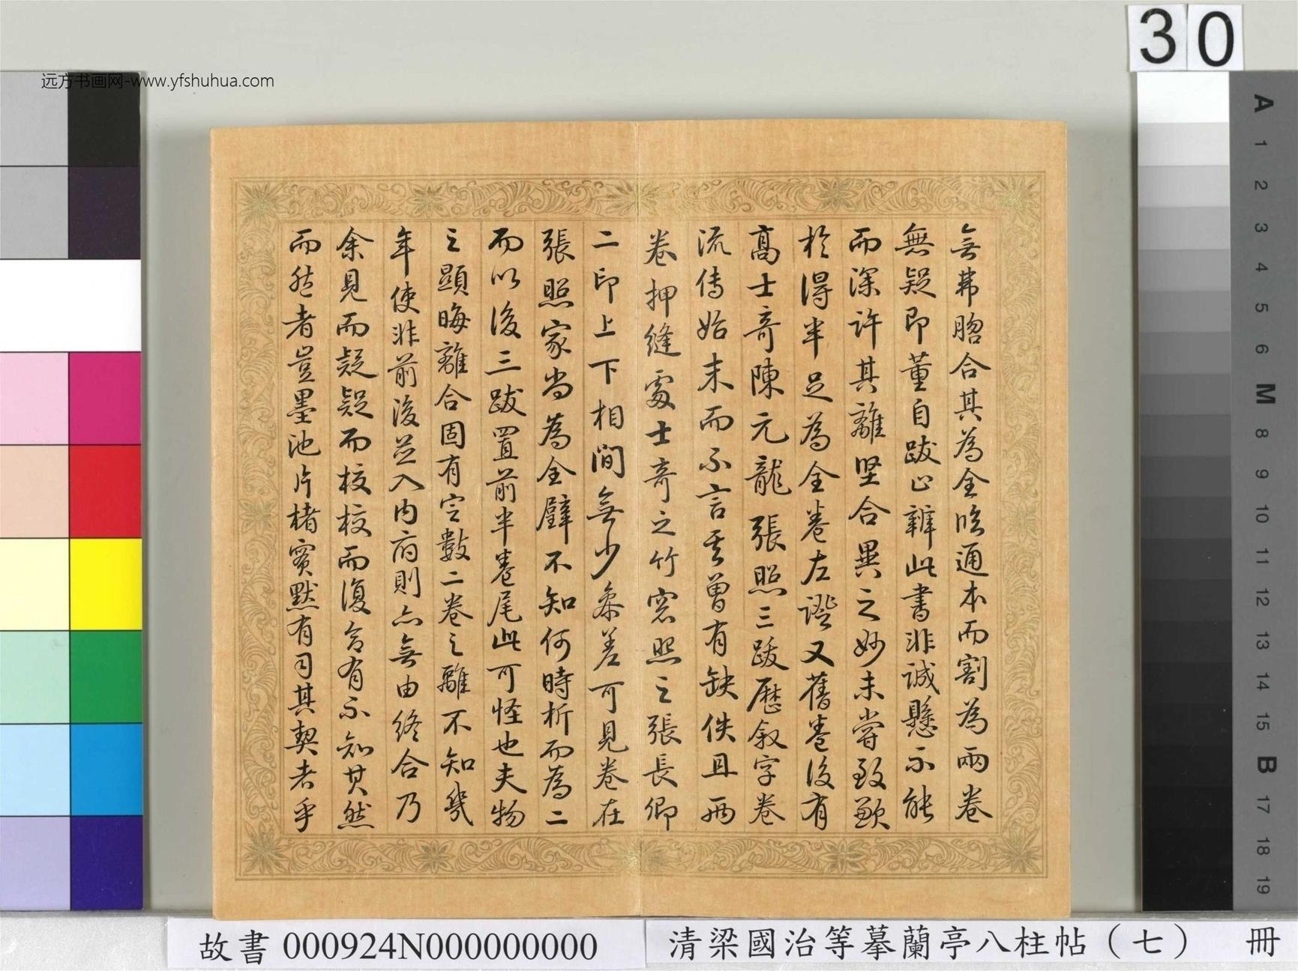 远方书画网-www.yfshuhua.com
30
無弗脗合其為全臨通本而割為兩卷
無疑即董自跋止辨此書非誠懸不能
而深許其離堅合異之妙未嘗致歉
於得半足為全卷左證又舊卷後有
高士奇陳元龍張照三跋歷敘字卷
流傳始末而不言其曾有缺佚且兩
卷押縫處士奇之竹窓照之張長卿
二印上下相間無少參差可見卷在
張照家尚為全璧不知何時析而為二
而以後三跋置前半卷尾此可怪也夫物
之顯晦離合固有定數二卷之離不知幾
年使非前後並入內府則亦無由終合乃
余見而疑疑而校校而復合有不知其然
而然者豈墨池片楮實默有司其契者乎
A
1
2
3
4
5
6
M
8
9
10
11
12
13
14
15
B
17
18
19
故書 000924N000000000
清梁國治等摹蘭亭八柱帖（七） 冊